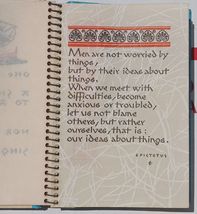 Men are not worried by
things,
but by their ideas about
things.
When we meet with
difficulties, become
anxious or troubled,
let us not blame
others, but rather
ourselves, that is:
our ideas about things.
EPICTETUS
6